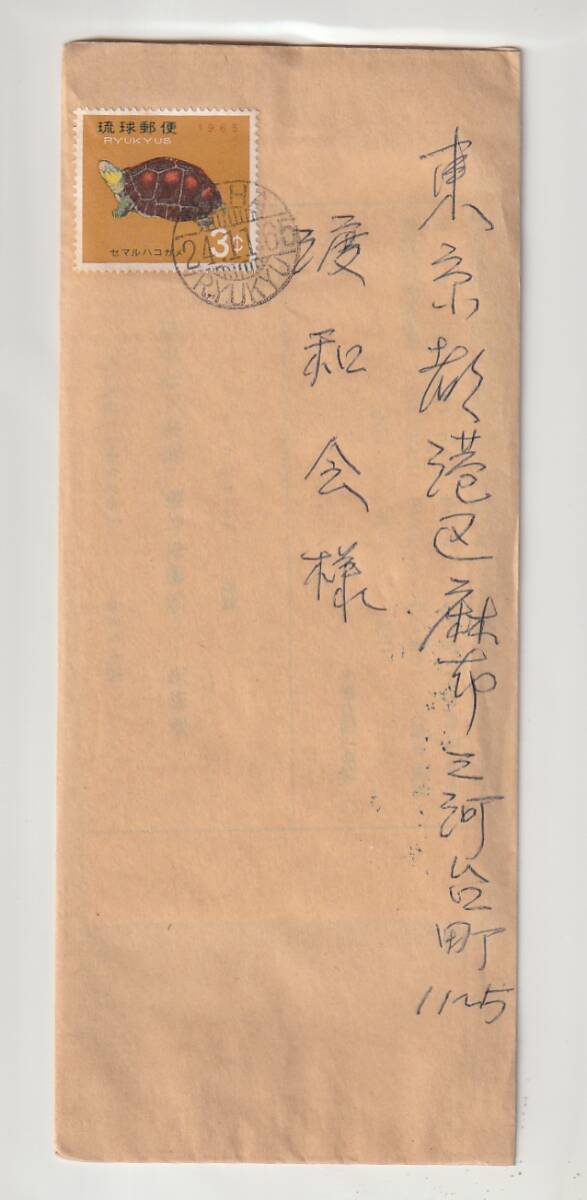 琉球郵便 1965
RYUKYUS
セマルハコガメ
3¢
RYUKYUS
東京都港区麻布三河台町
1125
渡和会様